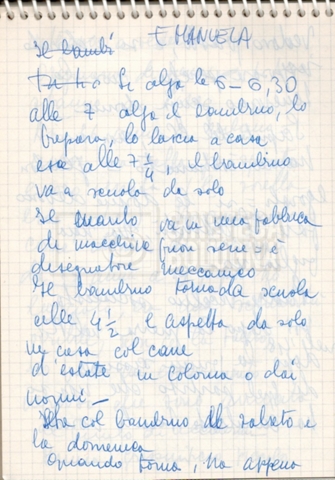 EMANUELA
Il bambi
Si alza le 6–6,30
alle 7 alza il bambino, lo
prepara, lo lascia a casa
esce alle 7 1/4, il bambino
va a scuola da solo
Il marito va in una fabbrica
di macchine è
disegnatore meccanico
Il bambino torna da scuola
alle 4 1/2 e aspetta da solo
in casa col cane
d'estate in colonia o dai
nonni –
Sta col bambino il sabato e
la domenica
Quando torna, ha appena